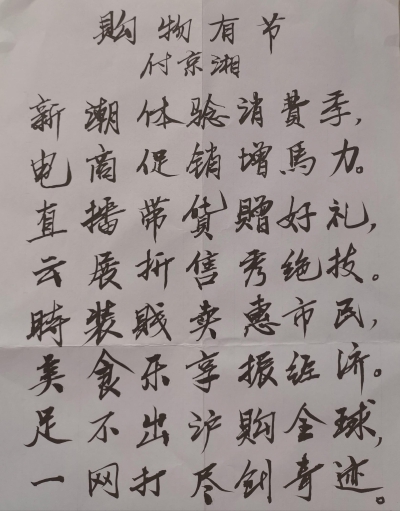 购物有节
付京湘
新潮体验消費季,
电商促销增馬力。
直播带貨贈好礼,
云展折售秀绝技。
時装贱卖惠市民,
美食乐享振经济。
足不出沪购全球,
一网打尽创奇迹。